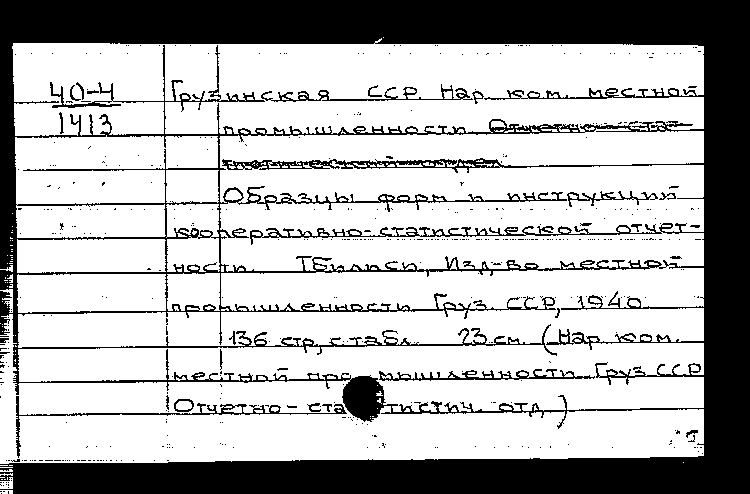 40-4
1413
Грузинская ССР. Нар. ком. местной
промышленности. Отчетно-стат-
истический отдел.
Образцы форм и инструкций
кооперативно-статистической отчет-
ности. Тбилиси, Изд-во местной
промышленности Груз. ССР, 1940.
136 стр., с табл. 23 см. (Нар. ком.
местной промышленности Груз ССР
Отчетно-статистич. отд.)